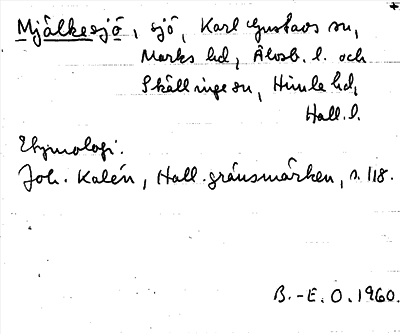 Mjälkesjö, sjö, Karl Gustavs sn,
Marks hd, Älvsb. l. och
Skällinge sn, Himle hd,
Hall. l.
Etymologi.
Joh. Kalén, Hall. gränsmärken, s. 118.
B.-E. O. 1960.